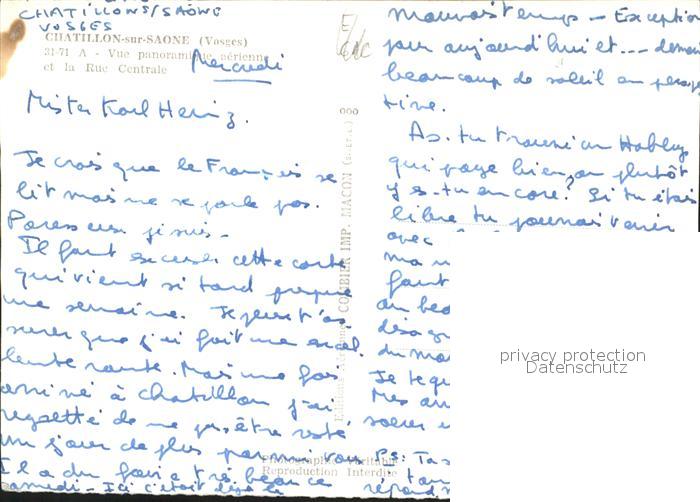 CHATILLONS/SAÔNE
VOSGES
CHATILLON-sur-SAONE (Vosges)
31-71 A - Vue panoramique aérienne
et la Rue Centrale
Mercredi
Mister Karl Heinz.
Je crois que le Français se
lit mais ne se parle pas.
Paresseux je suis -
Il faut excuser cette carte
qui vient si tard presque
une semaine. Je peux t'as
surer que j'ai fait une excel
lente route. Mais une fois
arrivé à Chatillon j'ai
regretté de ne pas être resté
un jour de plus parmi vous
Il a du faire très beau ce
samedi - Ici c'était déjà le
COMBIER IMP. MACON
Photographie Véritable
Reproduction Interdite
mauvais temps - Exception
pour aujourd'hui et --- demain
beaucoup de soleil en perspec
tive.
As-tu trouvé un Hobby
qui paye bien, ou plutôt
y es-tu encore? Si tu étais
libre tu pourrais venir
avec
ma
faut
au bea
désa
du ma
Je te
Mes
soeur
PS: Ta
répond
privacy protection
Datenschutz